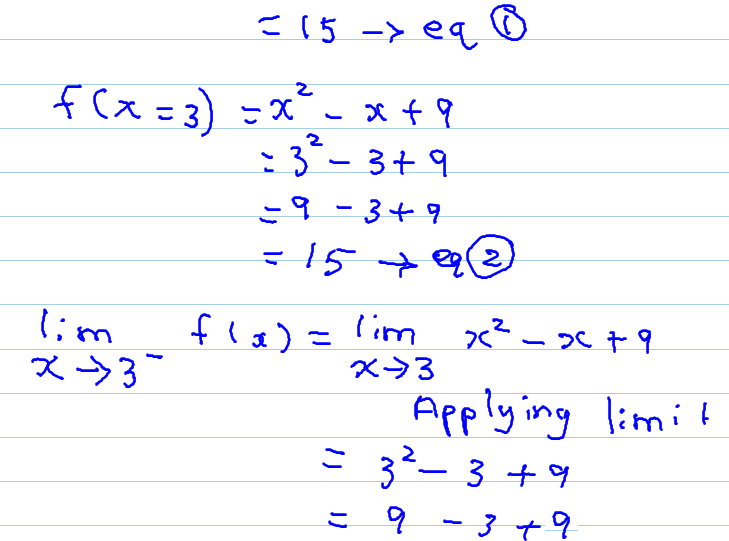 = 15 → eq ①
f(x = 3) = x² - x + 9
= 3² - 3 + 9
= 9 - 3 + 9
= 15 → eq ②
lim f(x) = lim x² - x + 9
x → 3⁻ x → 3
Applying limit
= 3² - 3 + 9
= 9 - 3 + 9